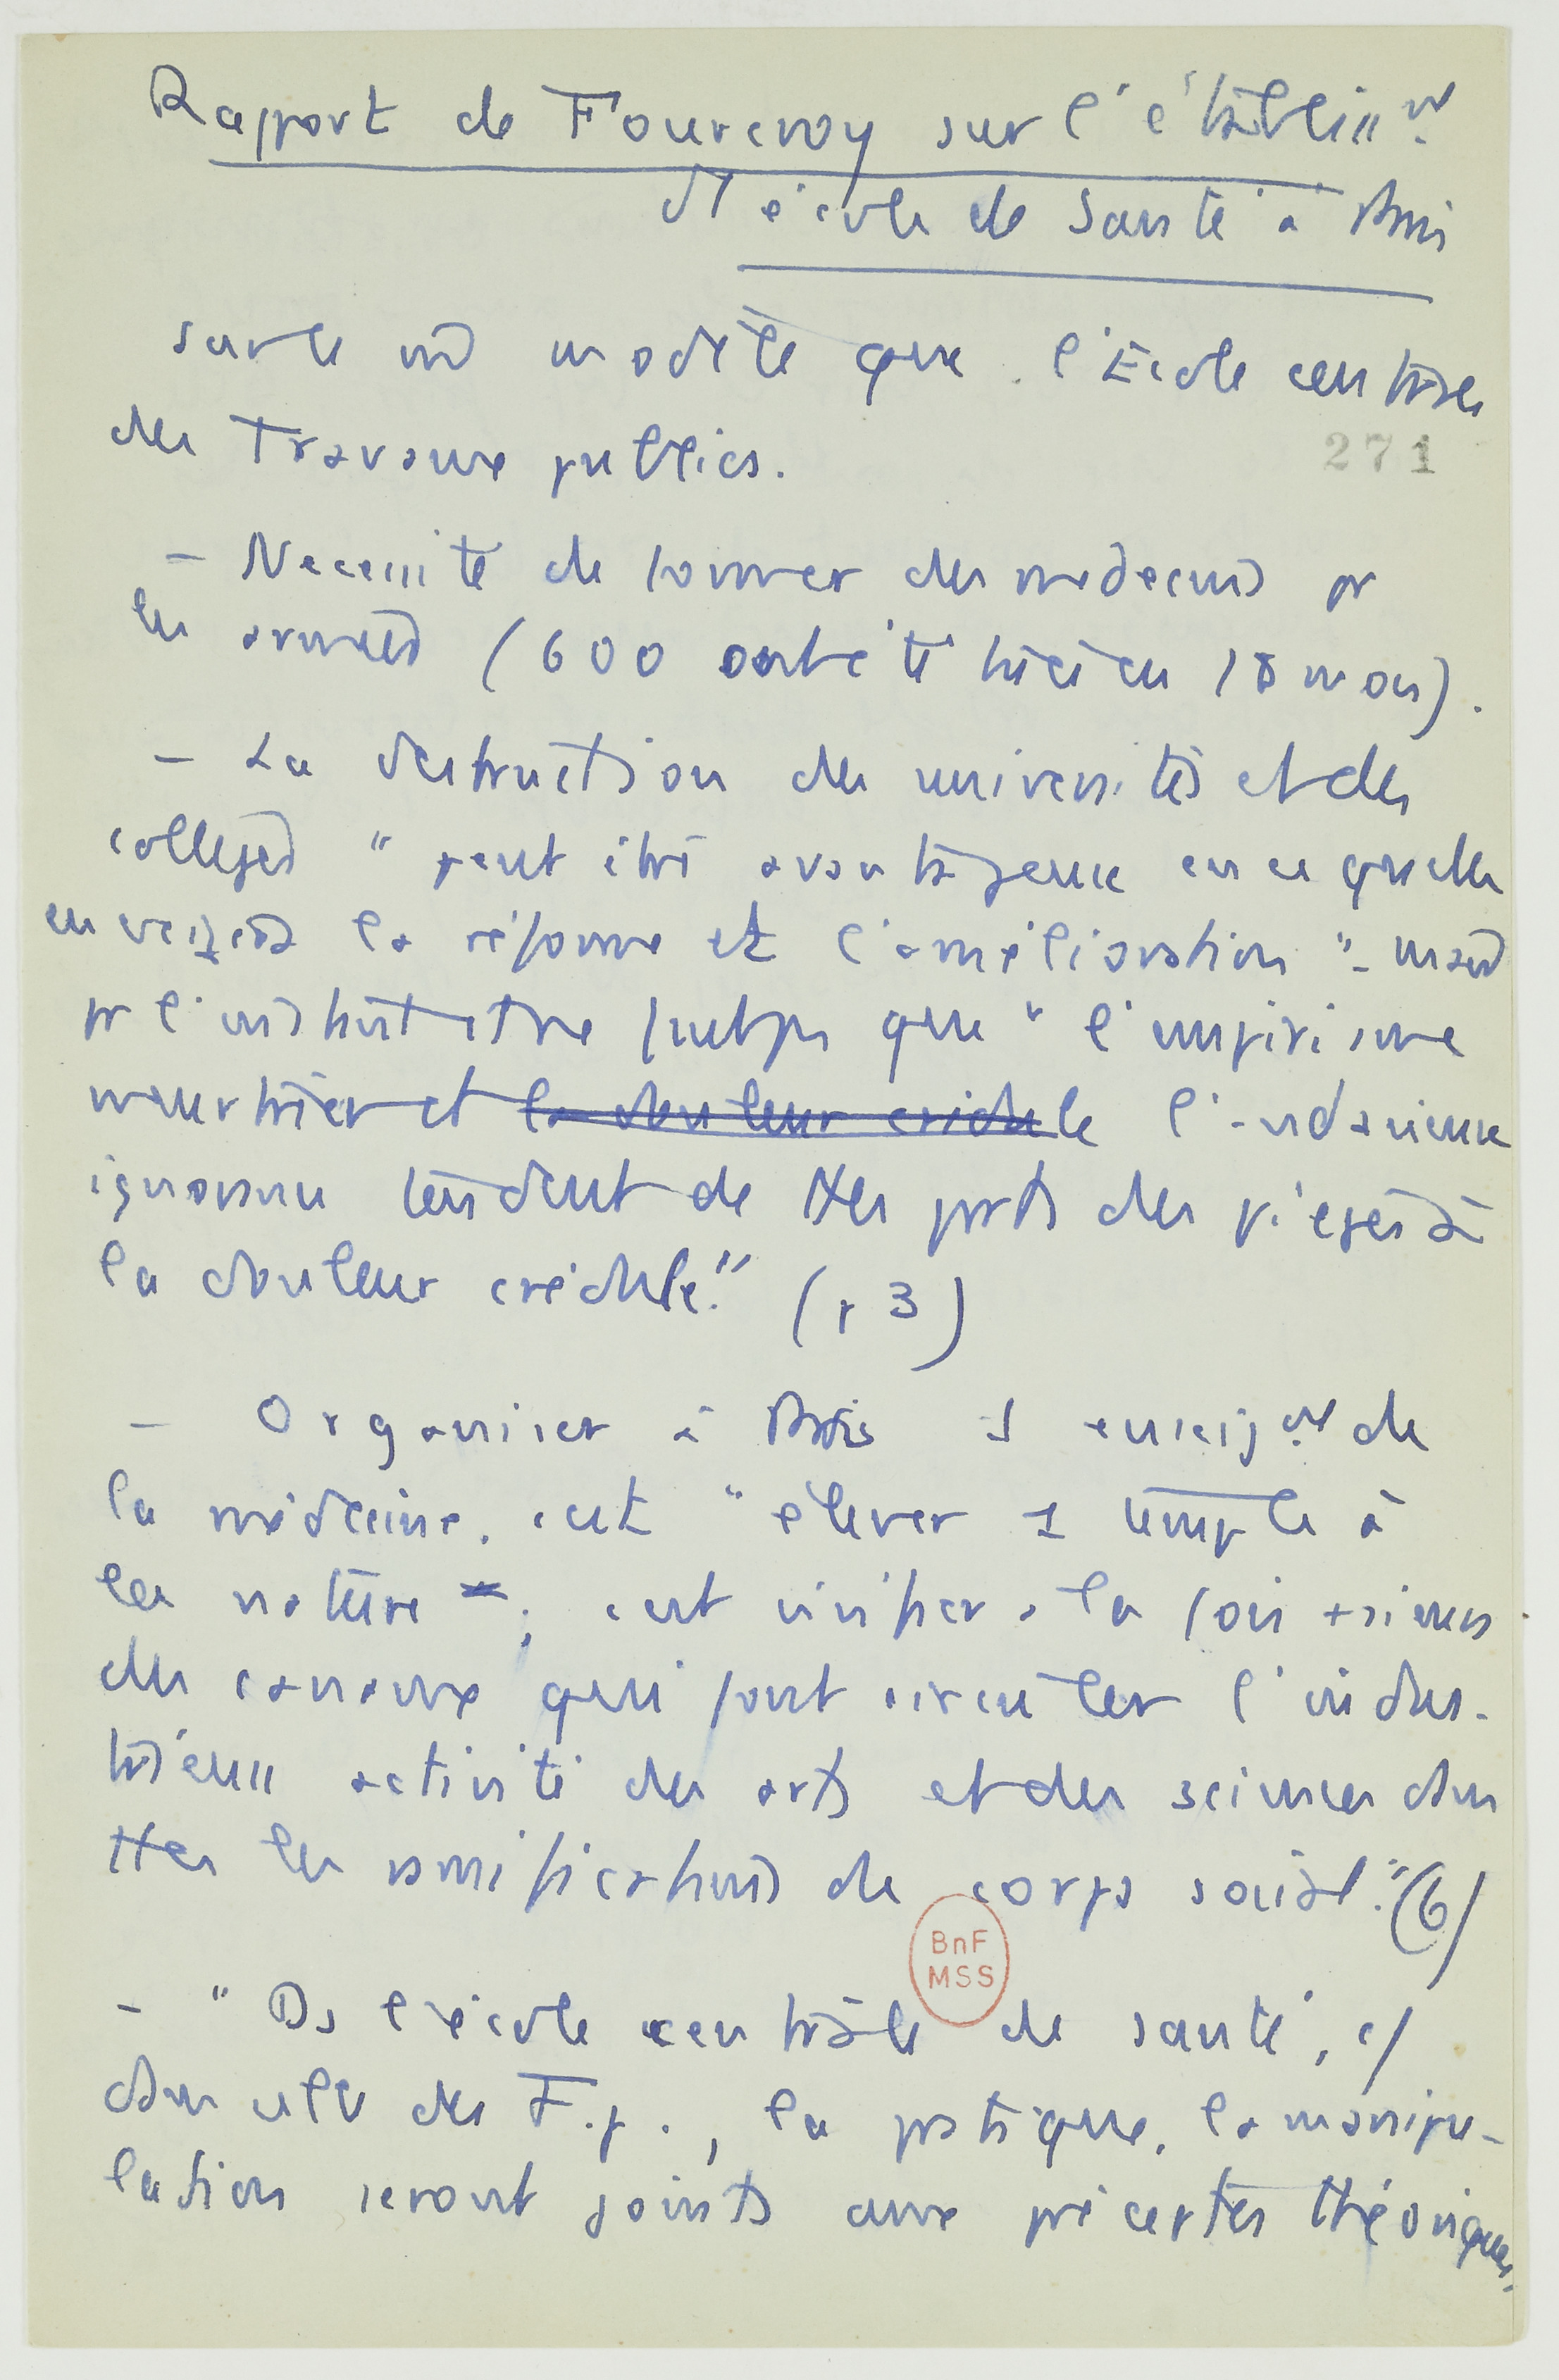 Rapport de Fourcroy sur l'établisst
d'1 école de Santé à Paris
sur le m̂ modèle que l'Ecole centrale
des Travaux publics.
271
- Necessité de former des médecins pr
les armées (600 ont été tués en 18 mois).
- La destruction des universités et des
collèges "peut être avantageuse en ce qu'elle
en la réforme et l'amélioration" - mais
pr l'instant elle que "l'empirisme
meurtrier et la douleur crédule l'audacieuse
ignorance tendent de ttes parts des pièges à
la douleur crédule." (p 3)
- Organiser à Paris 1 enseignt de
la médecine, c'est "élever 1 temple à
la nature ; c'est vivifier à la fois
des canaux qui font circuler l'indus-
trieuse activité des arts et des sciences dans
ttes les ramifications de corps social." (6)
BnF
MSS
- "Ds l'école centrale de santé, c/
dans celle des T.p., la pratique, la manipu-
lation seront joints aux préceptes théoriques.